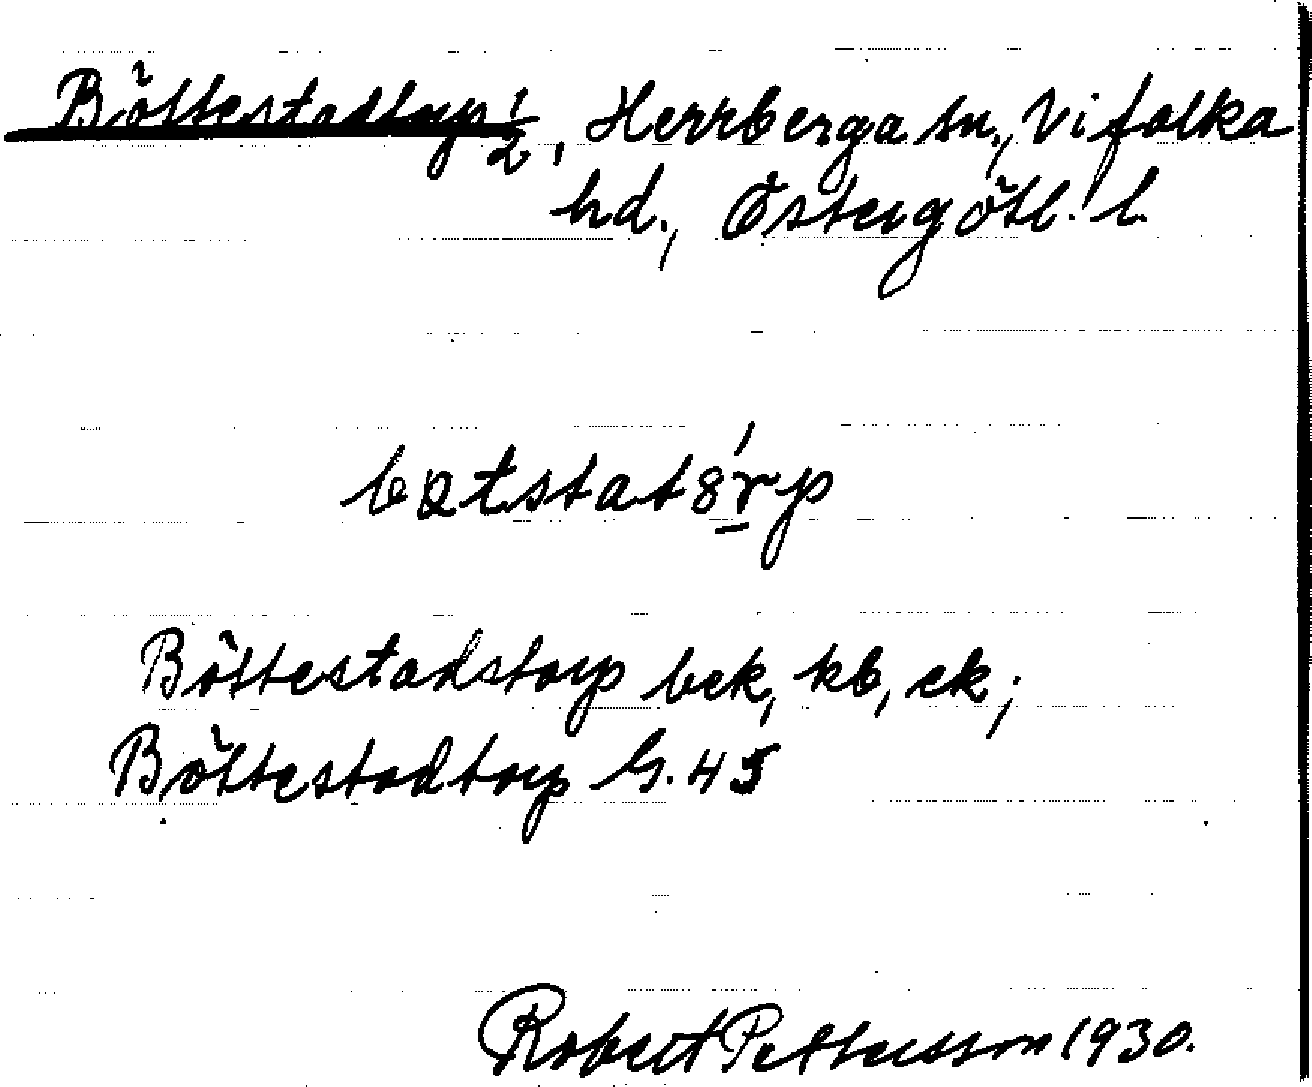 Böttestadtorp ½, Herrberga sn., Vifolka
hd., Östergötl. l.
Böttestadstorp bek, kb, ek;
Böttestadtorp G. 45
Robert Pettersson 1930.